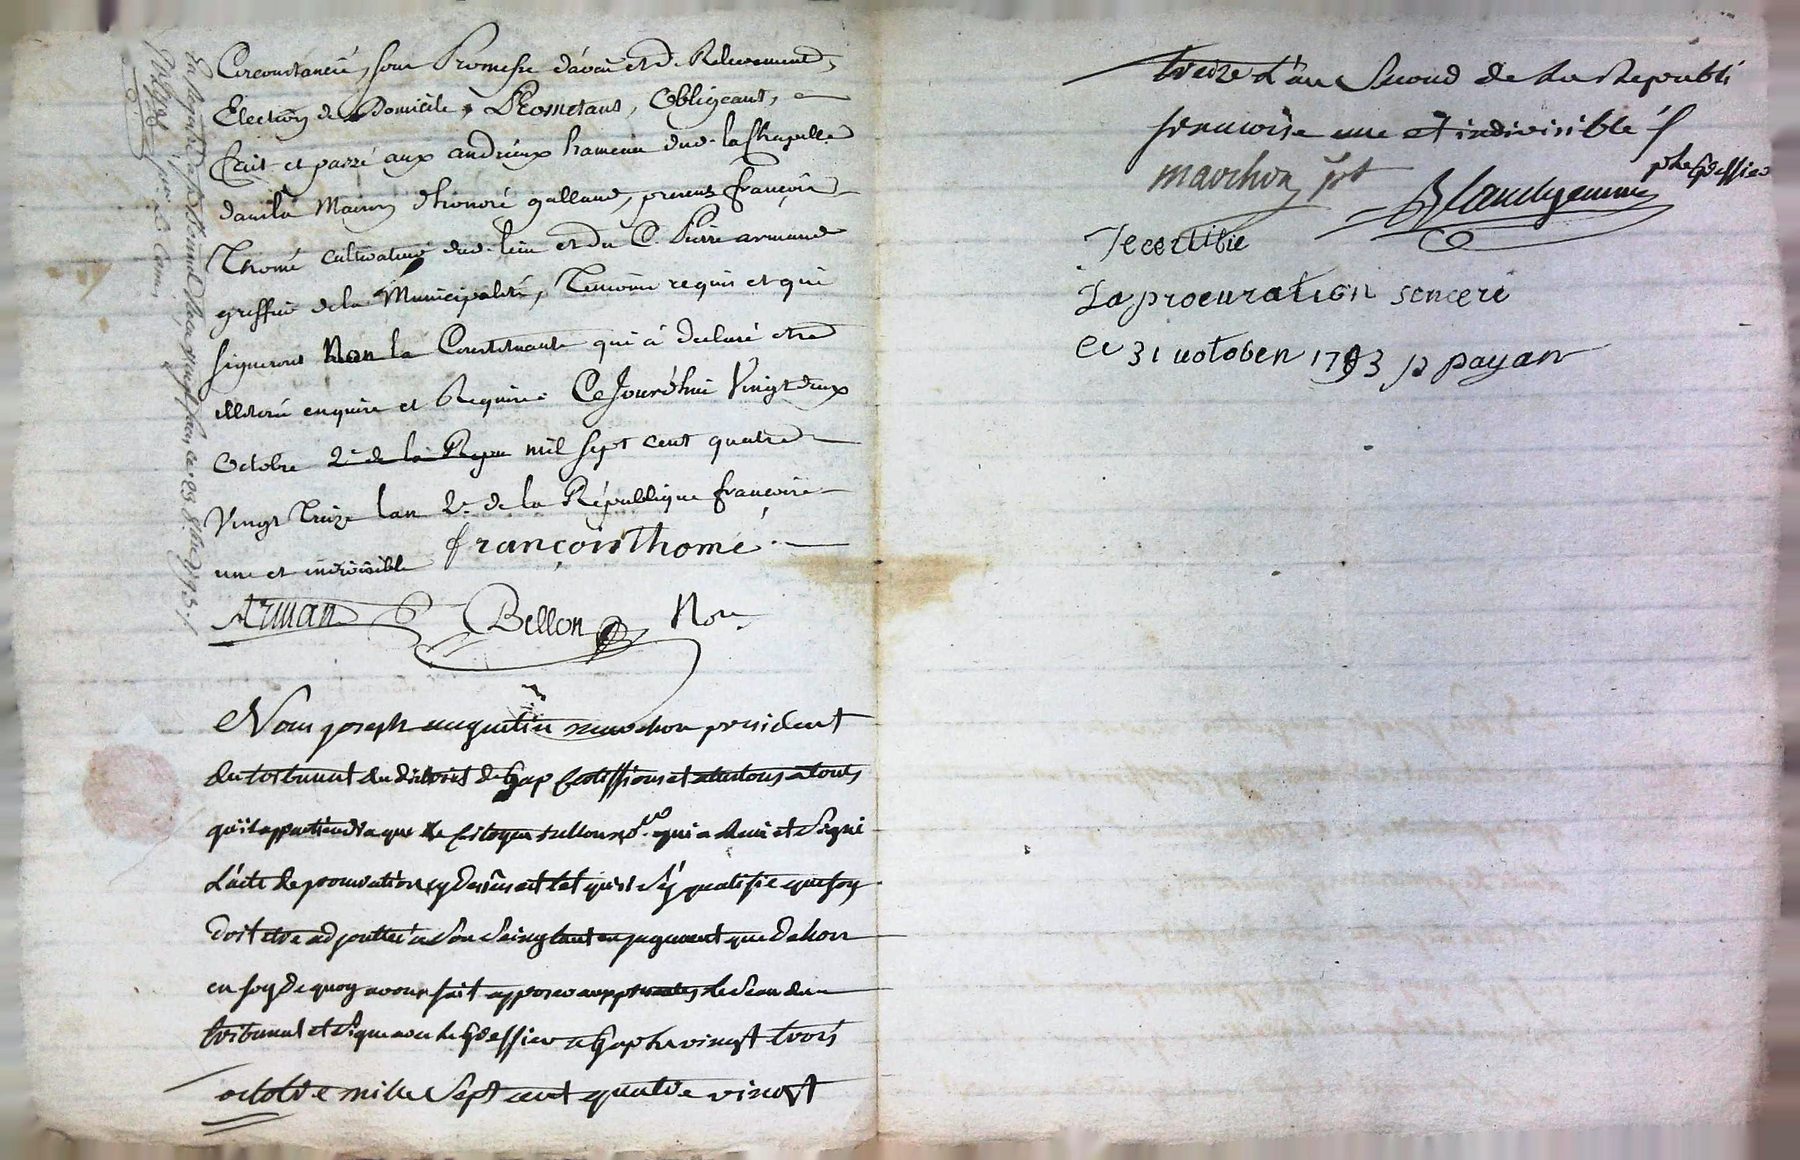 Circonstancié, sous Promesse d'avoir et d. Relevement,
Election de Domicile, Prometant, Obligeant,
fait et passé aux andrieux hameau dud. la Chapelle
dans la Maison d'honoré galland, presents françois
Thomé cultivateur dud. lieu et du C. Pierre armand
greffier de la Municipalité, Temoins requis et qui
signeront Non la Constituante qui à declaré etre
illiterée enquise et Requise. Ce Jourd'hui Vingt deux
Octobre 2e de la Repu mil sept cent quatre
Vingt Treize lan 2e de la République françoise
une et indivisible françois thomé
Arman Bellon No.re
Nous joseph augustin marchon president
du tribunal du district de Gap certiffions et attestons a tous
qu'il appartiendra que le citoyen bellon no.re qui a Receu et Signé
L'acte de procuration cy dessus est tel qu'il s'y qualifie que foy
doit etre adjouttée a Son Seing tant en jugement que dehors
en foy de quoy avons fait apposer aux presentes le Seau du
tribunal et Signé avec le Greffier a Gap le vingt trois
octobre mille Sept cent quatre vingt
treize L'an Second de La Republi
francoise une et indivisible
marchon prt
Blanc
greffier
Je certifie
La procuration sencere
le 31 uotoben 1793 p payan